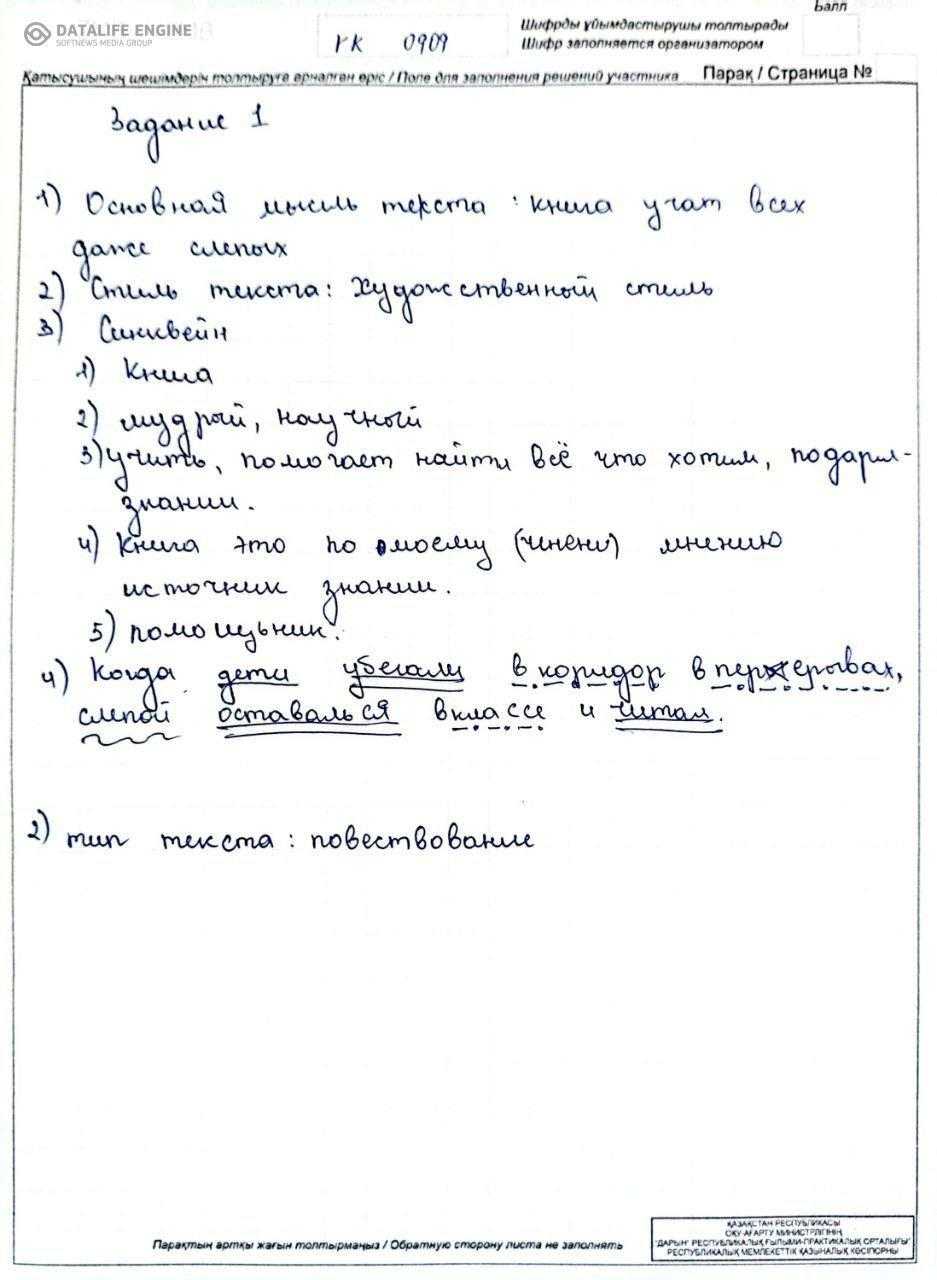 DATALIFE ENGINE
SOFTNEWS MEDIA GROUP
Балл
КК 0909
Шифрды ұйымдастырушы толтырады
Шифр заполняется организатором
Қатысушының шешімдерін толтыруға арналған өріс / Поле для заполнения решений участника Парақ / Страница №
Задание 1
1) Основная мысль текста : книга учат всех
даже слепых
2) Стиль текста: Художественный стиль
3) Синквейн
1) Книга
2) мудрый, научный
3) учить, помогает найти всё что хотим, подарил-
знании.
4) Книга это по моему (чнени) мнению
источник знании.
5) помощьник.
4) Когда дети убегали в коридор в перерывах,
слепой оставалься в классе и читал.
2) тип текста : повествование
Парақтың артқы жағын толтырмаңыз / Обратную сторону листа не заполнять
ҚАЗАҚСТАН РЕСПУБЛИКАСЫ
ОҚУ-АҒАРТУ МИНИСТРЛІГІНІҢ
"ДАРЫН" РЕСПУБЛИКАЛЫҚ ҒЫЛЫМИ-ПРАКТИКАЛЫҚ ОРТАЛЫҒЫ"
РЕСПУБЛИКАЛЫҚ МЕМЛЕКЕТТІК ҚАЗЫНАЛЫҚ КӘСІПОРНЫ